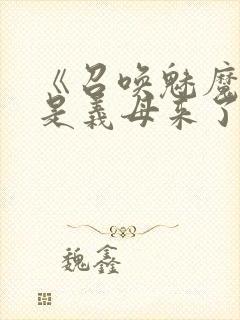 《召唤魅魔
是義母来了
魏鑫